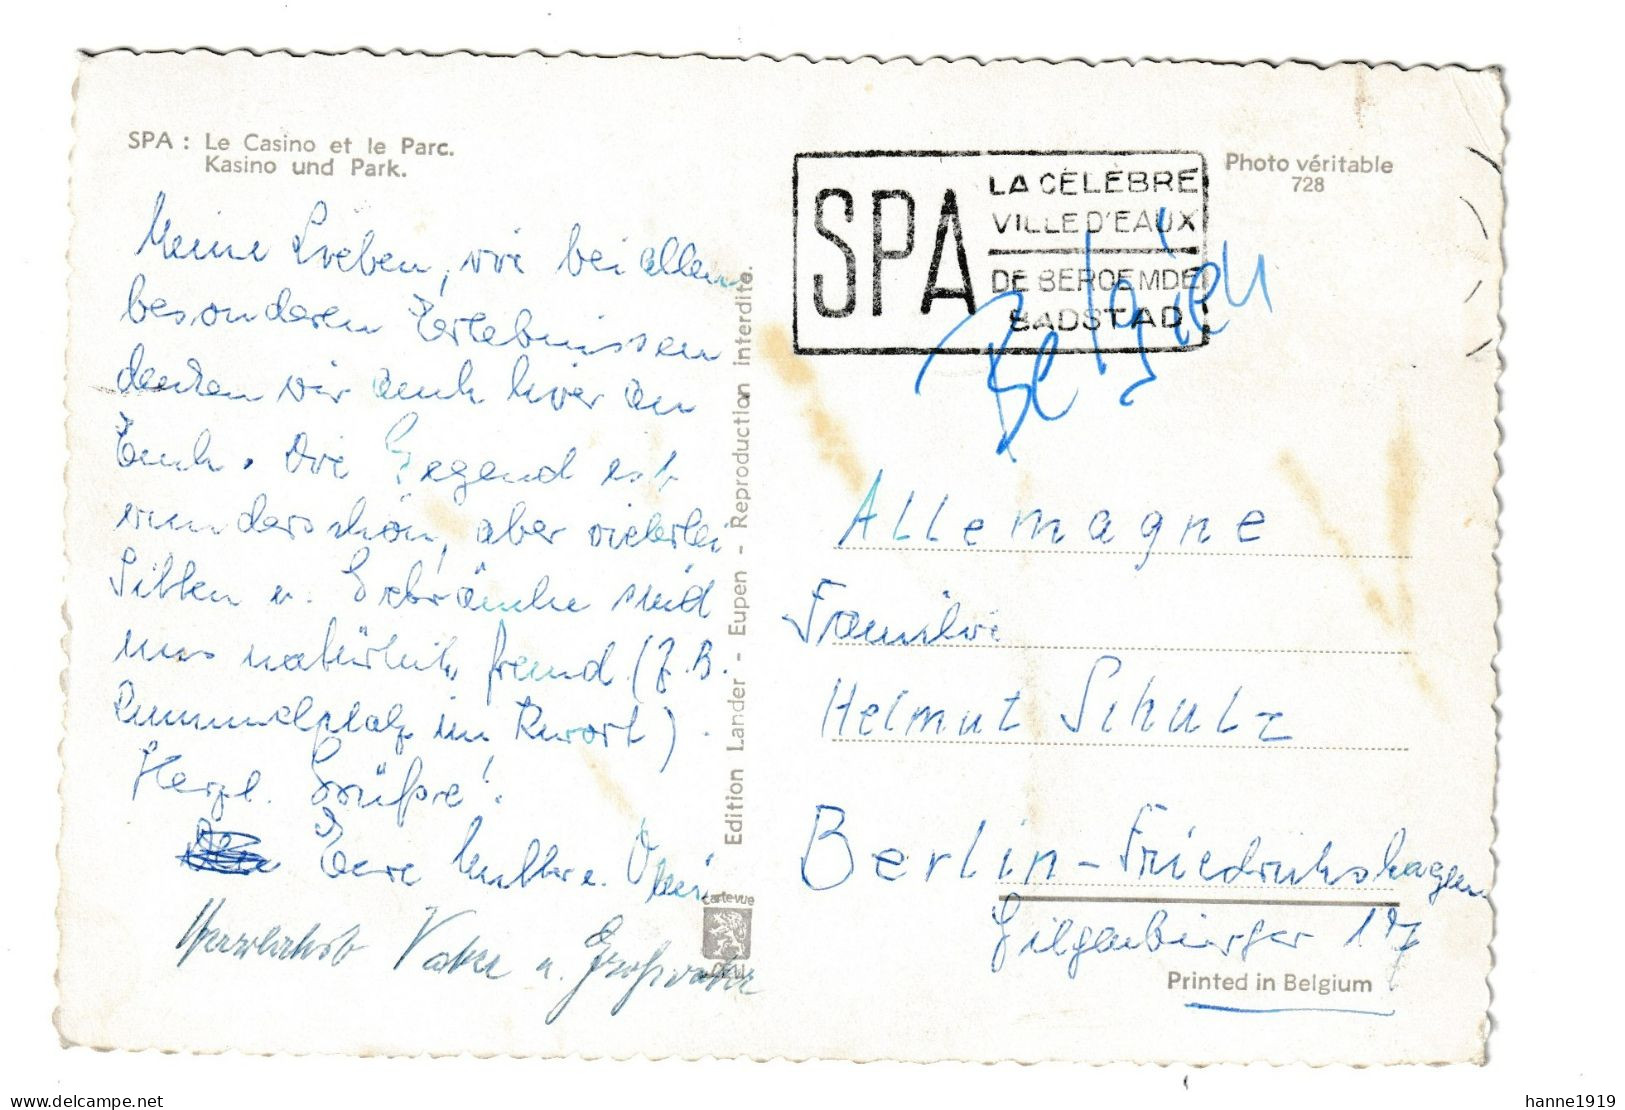 SPA : Le Casino et le Parc.
Kasino und Park.
Meine Lieben, wie bei allen
besonderen Erlebnissen
denken wir auch hier an
Euch. Die Gegend ist
wunderschön, aber vielerlei
Sitten u. Gebräuche sind
uns natürlich fremd (z.B.
Rummelplatz im Kurort).
Herzl. Grüße!
Eure Mutter u. Omi
Herzlichst Vater u. Großvater
Edition Lander - Eupen - Reproduction interdite.
Cartevue
SPA
LA CÉLÈBRE
VILLE D'EAUX
DE BEROEMDE
BADSTAD
Photo véritable
728
Belgien
Allemagne
Familie
Helmut Schulz
Berlin-Friedrichshagen
Gilgenburger 17
Printed in Belgium
delcampe.net
hanne1919